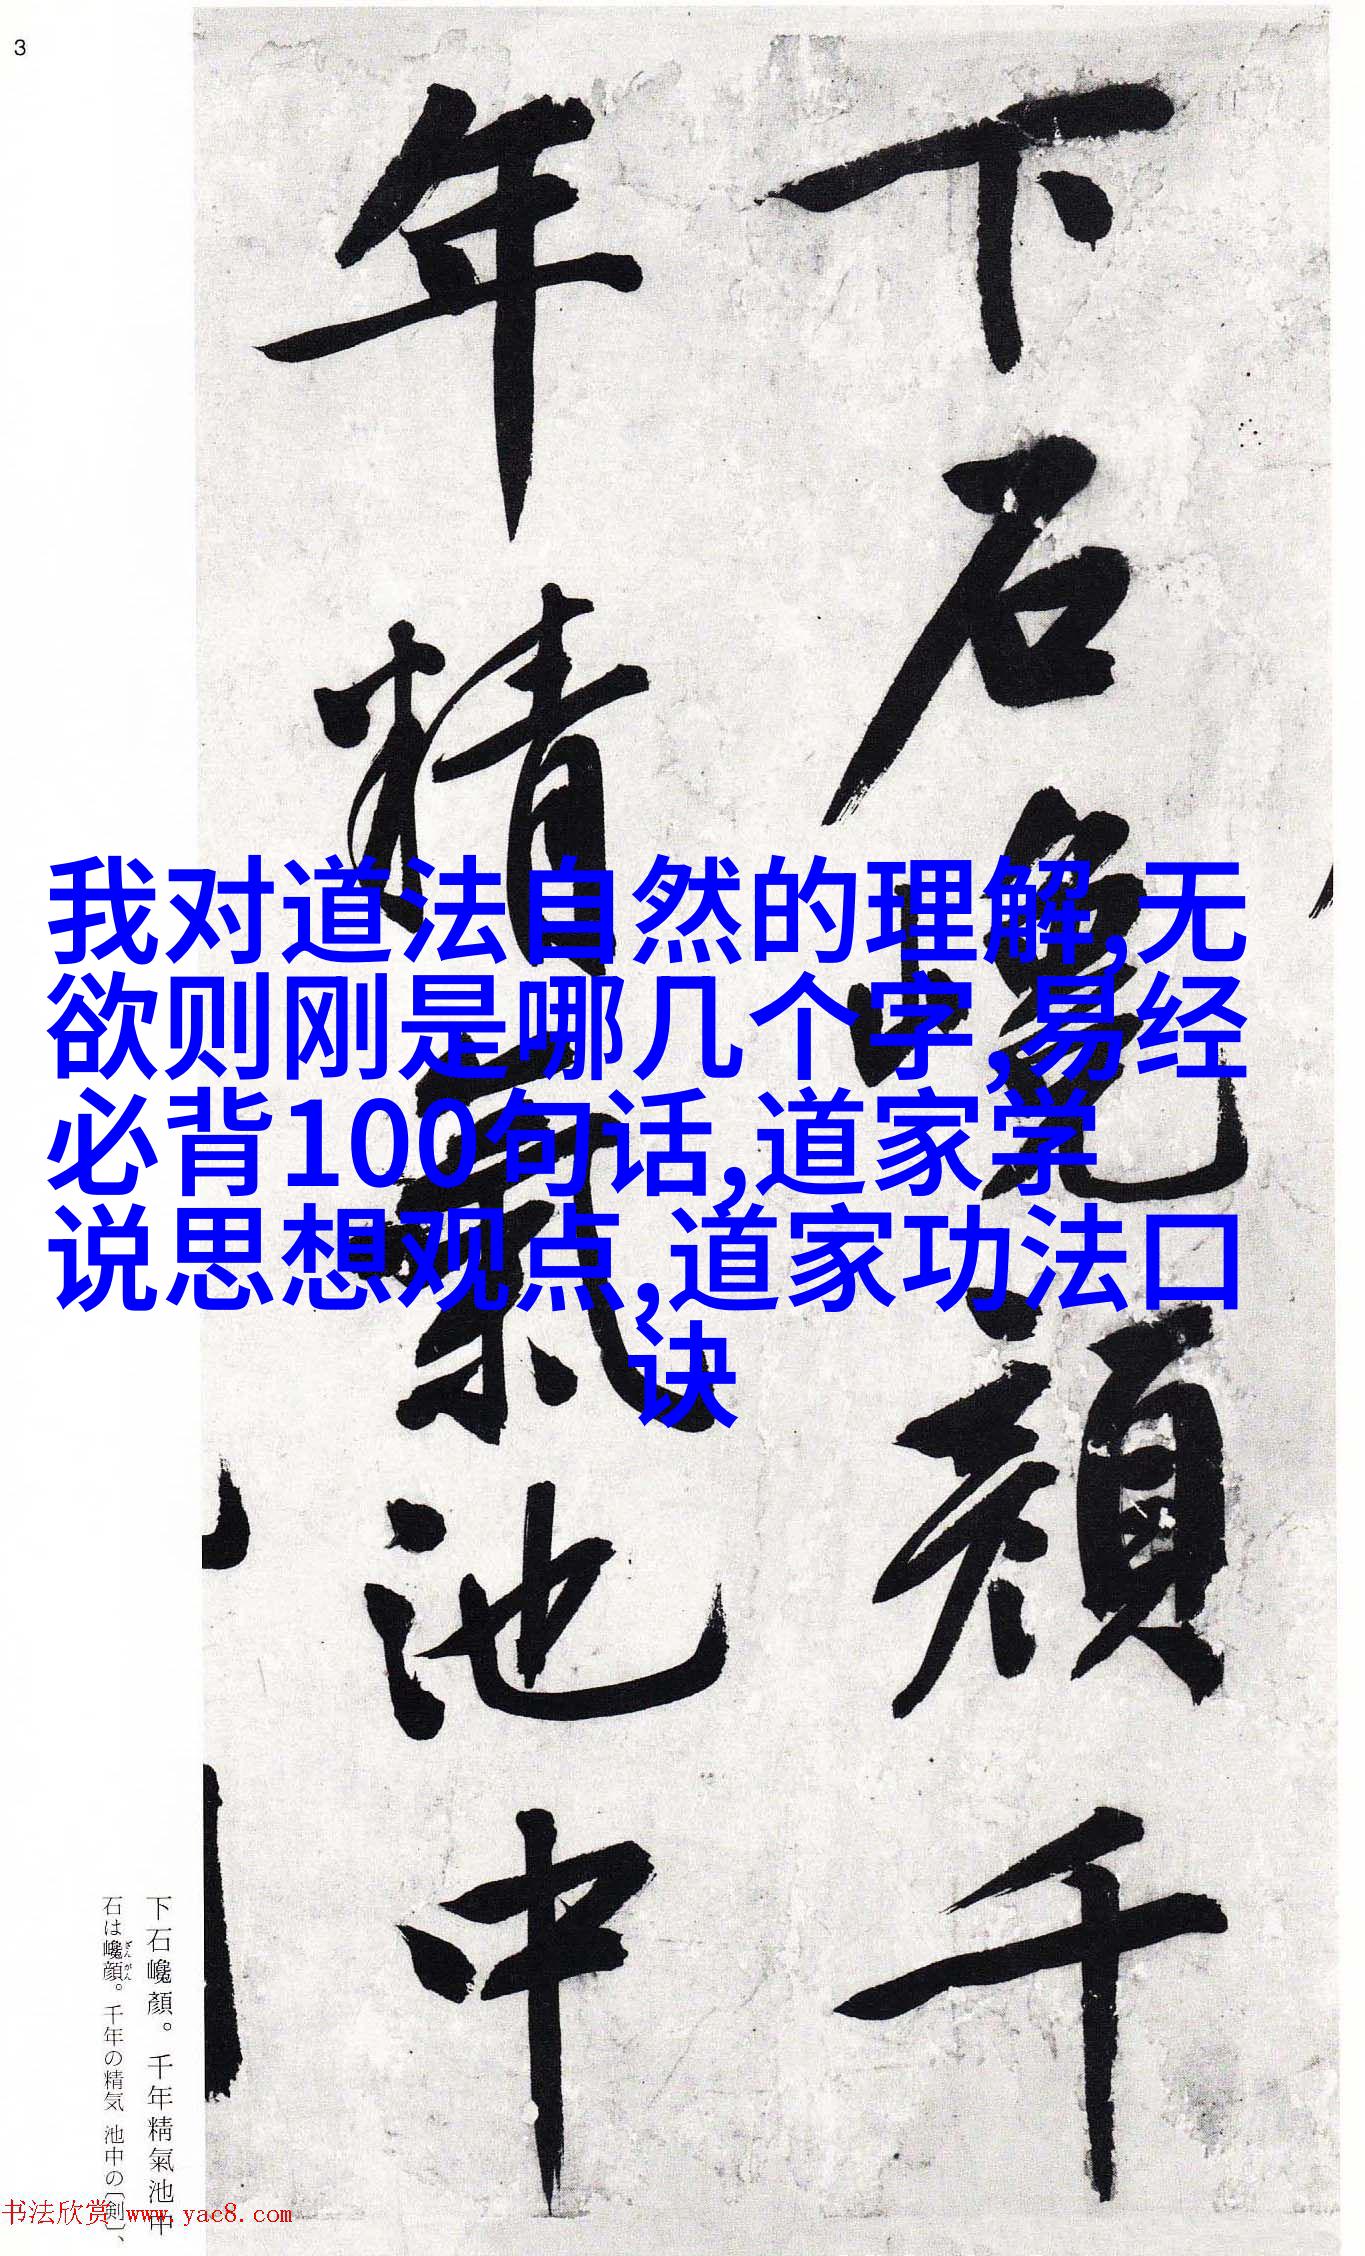 3
下石巉顏千
年精氣池中
我对道法自然的理解,无
欲则刚是哪几个字,易经
必背100句话,道家学
说思想观点,道家功法口
诀
下石巉顏。千年精氣池中
石は巉顔。千年の精気 池中の〔剣〕、
ざん がん
书法欣赏 www.yac8.com